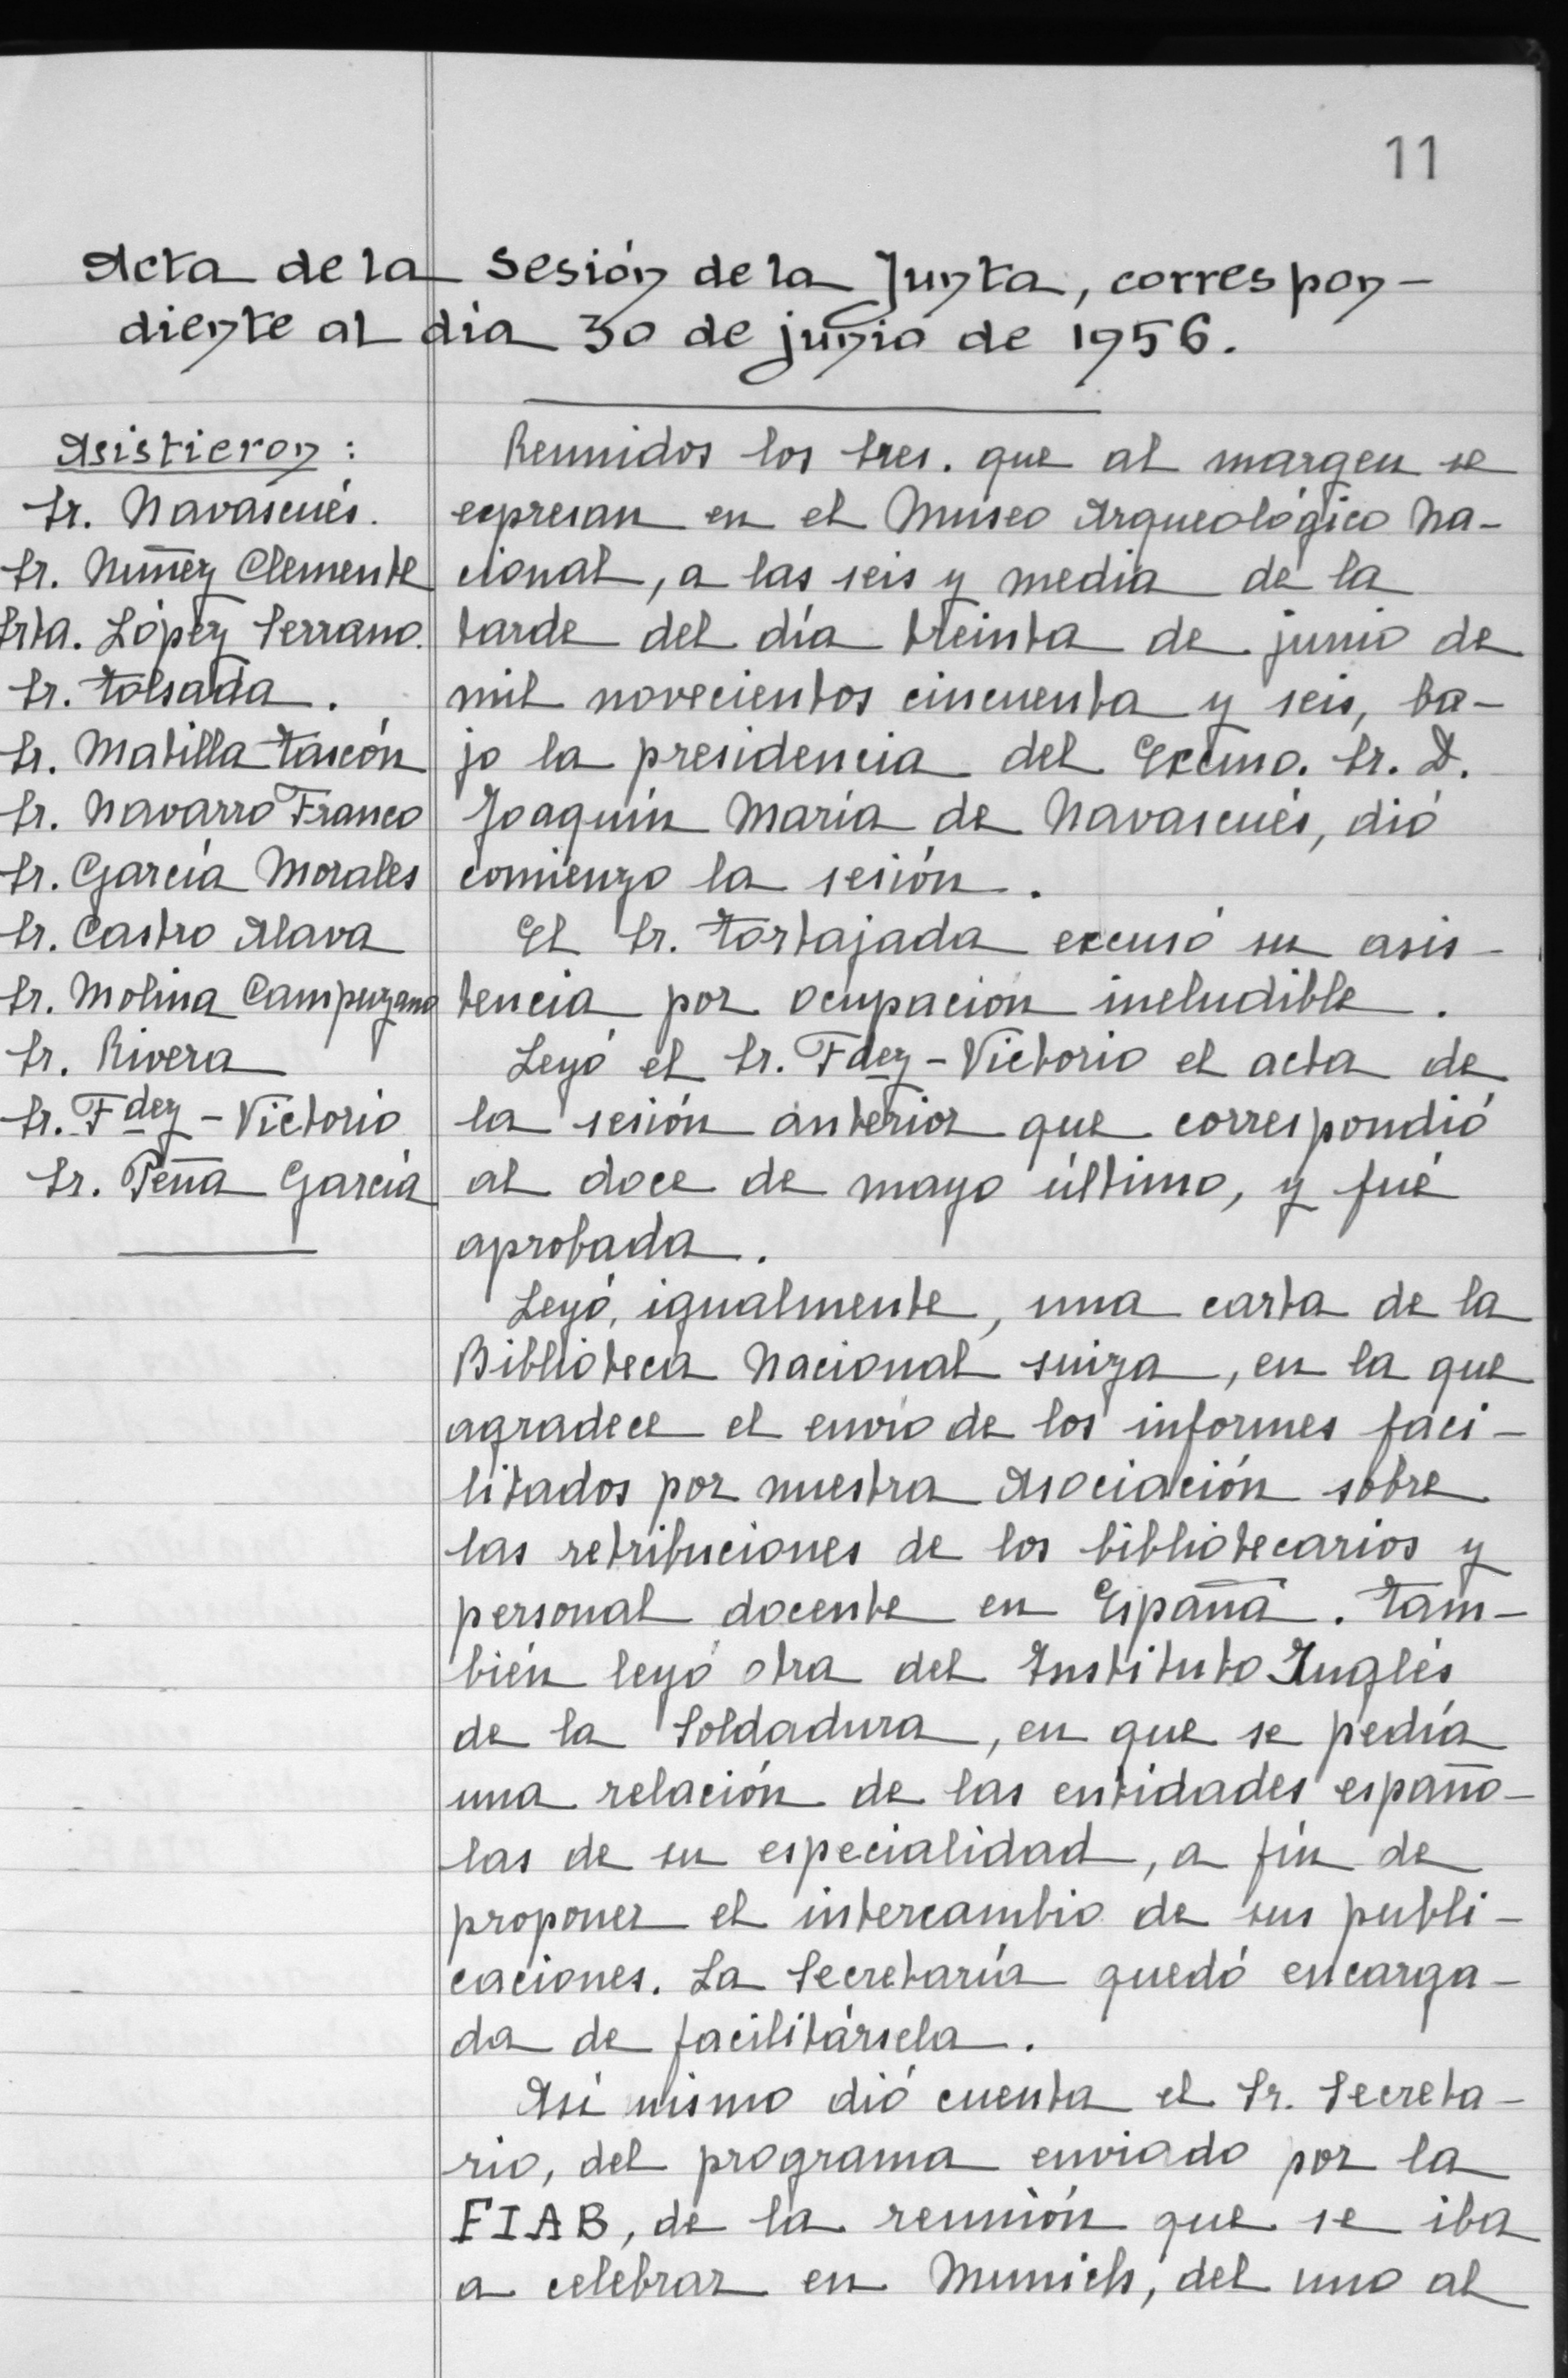 11
Acta de la sesión de la Junta, correspon-
diente al día 30 de junio de 1956.
Asistieron:
Sr. Navascués.
Sr. Nuñez Clemente
Srta. López Serrano.
Sr. Tolsada.
Sr. Matilla Tascón
Sr. Navarro Franco
Sr. García Morales
Sr. Castro Alava
Sr. Molina Campuzano
Sr. Rivera
Sr. Fdez-Victorio
Sr. Peña García
Reunidos los sres. que al margen se
expresan en el Museo Arqueológico Na-
cional, a las seis y media de la
tarde del día treinta de junio de
mil novecientos cincuenta y seis, ba-
jo la presidencia del Excmo. Sr. D.
Joaquín María de Navascués, dió
comienzo la sesión.
El Sr. Tortajada excusó su asis-
tencia por ocupación ineludible.
Leyó el Sr. Fdez-Victorio el acta de
la sesión anterior que correspondió
al doce de mayo último, y fué
aprobada.
Leyó, igualmente, una carta de la
Biblioteca Nacional suiza, en la que
agradece el envío de los informes faci-
litados por nuestra Asociación sobre
las retribuciones de los bibliotecarios y
personal docente en España. Tam-
bién leyó otra del Instituto Inglés
de la Soldadura, en que se pedía
una relación de las entidades españo-
las de su especialidad, a fin de
proponer el intercambio de sus publi-
caciones. La Secretaría quedó encarga-
da de facilitársela.
Así mismo dió cuenta el Sr. Secreta-
rio, del programa enviado por la
FIAB, de la reunión que se iba
a celebrar en Munich, del uno al